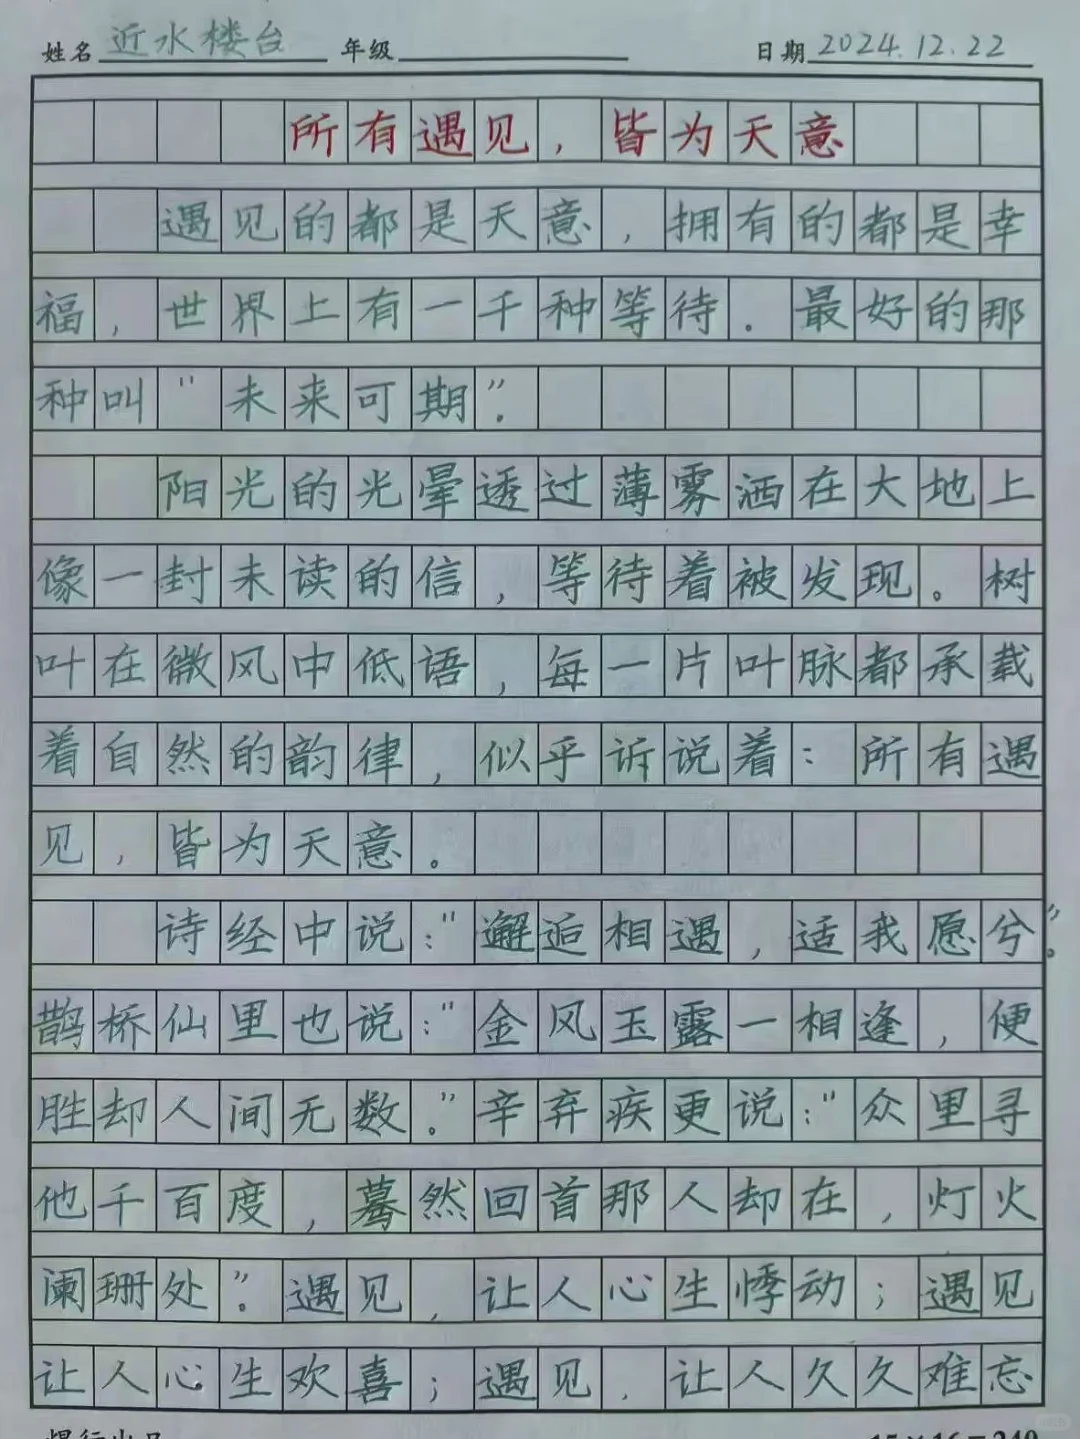 姓名 近水楼台 年级 日期 2024.12.22
所有遇见，皆为天意
遇见的都是天意，拥有的都是幸
福，世界上有一千种等待．最好的那
种叫“未来可期”．
阳光的光晕透过薄雾洒在大地上
像一封未读的信，等待着被发现。树
叶在微风中低语，每一片叶脉都承载
着自然的韵律，似乎诉说着：所有遇
见，皆为天意。
诗经中说：“邂逅相遇，适我愿兮”。
鹊桥仙里也说：“金风玉露一相逢，便
胜却人间无数。”辛弃疾更说：“众里寻
他千百度，蓦然回首那人却在，灯火
阑珊处”。遇见，让人心生悸动；遇见
让人心生欢喜；遇见．让人久久难忘
15×16=240